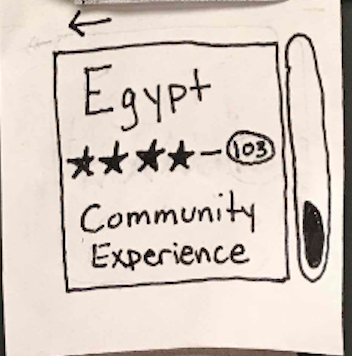 Egypt
★★★★ – 103
Community
Experience